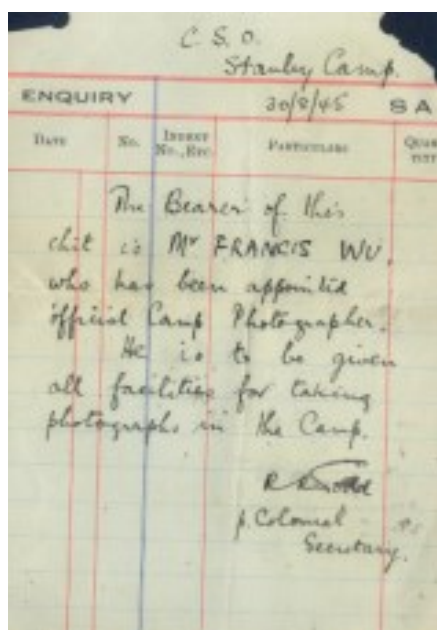 C. S. O.
Stanley Camp.
ENQUIRY 30/8/45 SA
DATE No. INDENT No., ETC. PARTICULARS QUAN TITY
The Bearer of this
chit is Mr FRANCIS WU,
who has been appointed
official Camp Photographer.
He is to be given
all facilities for taking
photographs in the Camp.
R
p. Colonial
Secretary.